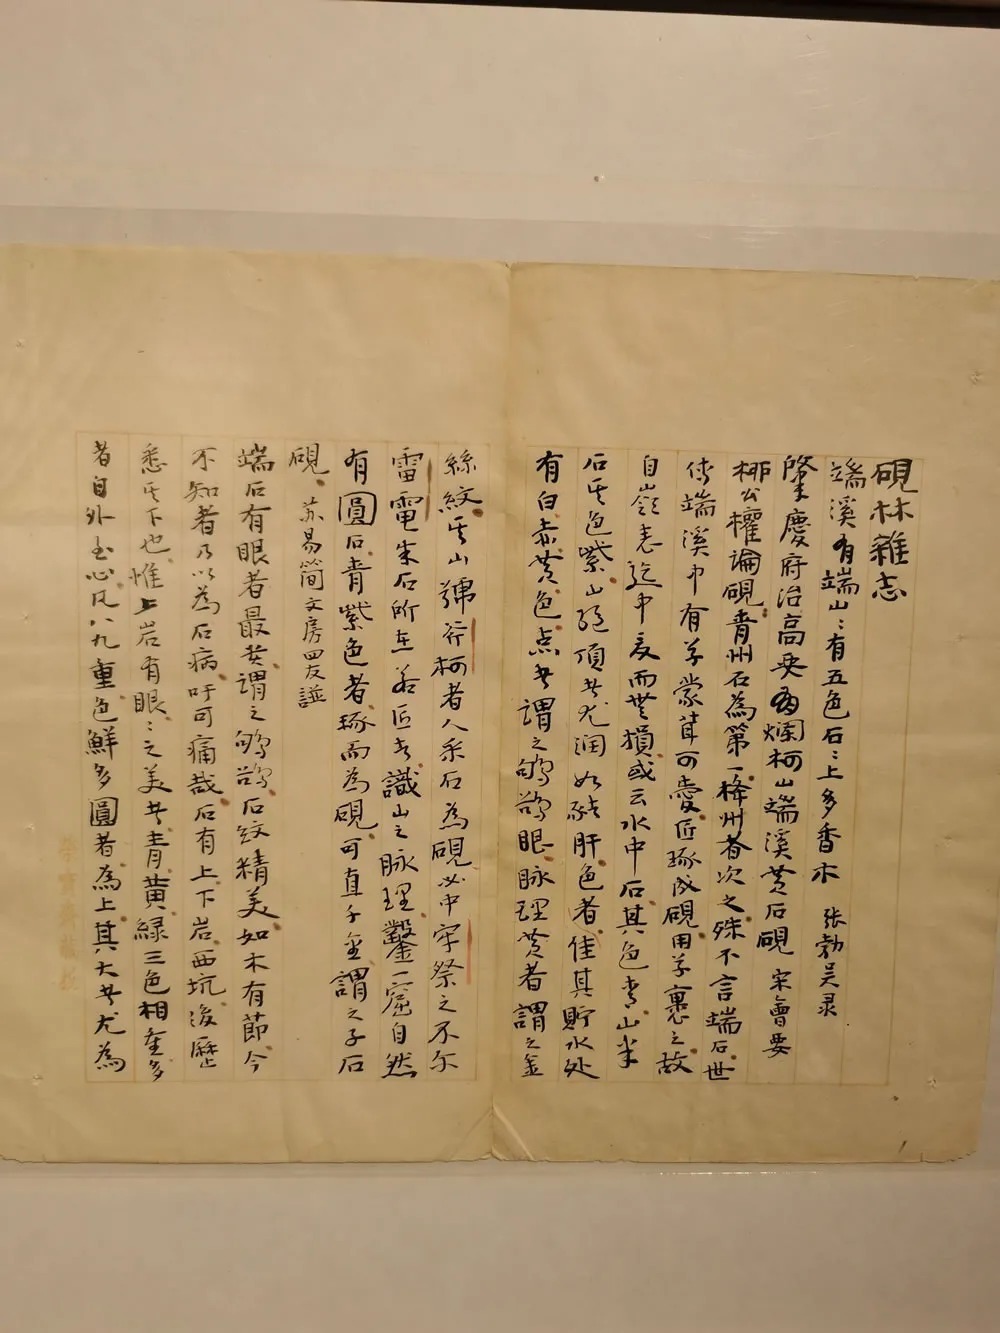 硯林雜志
端溪有端山：有五色石：上多香木 张勃吴录
肇慶府治高要 為爛柯山端溪黄石硯 宋會要
柳公權論硯青州石為第一絳州者次之殊不言端石世
傳端溪中有草蒙茸可愛匠琢成硯用草裹之故
自嶺表迄中夏而無損或云水中石其色青山半
石其色紫山絕頂者尤润如猪肝色者佳其貯水处
有白赤黄色点者謂之鸲鹆眼脉理黄者謂之金
絲紋其山號斧柯者人采石為硯必中牢祭之不尔
雷電失石所在若匠者識山之脉理鑿一窟自然
有圓石青紫色者琢而為硯可直千金謂之子石
硯、苏易简文房四友譜
端石有眼者最貴謂之鸲鹆石紋精美如木有節今
不知者乃以為石病吁可痛哉石有上下岩西坑後歷
悉其下也惟上岩有眼：之美者青黄緑三色相重多
者自外至心凡八九重色鮮多圓者為上其大者尤為